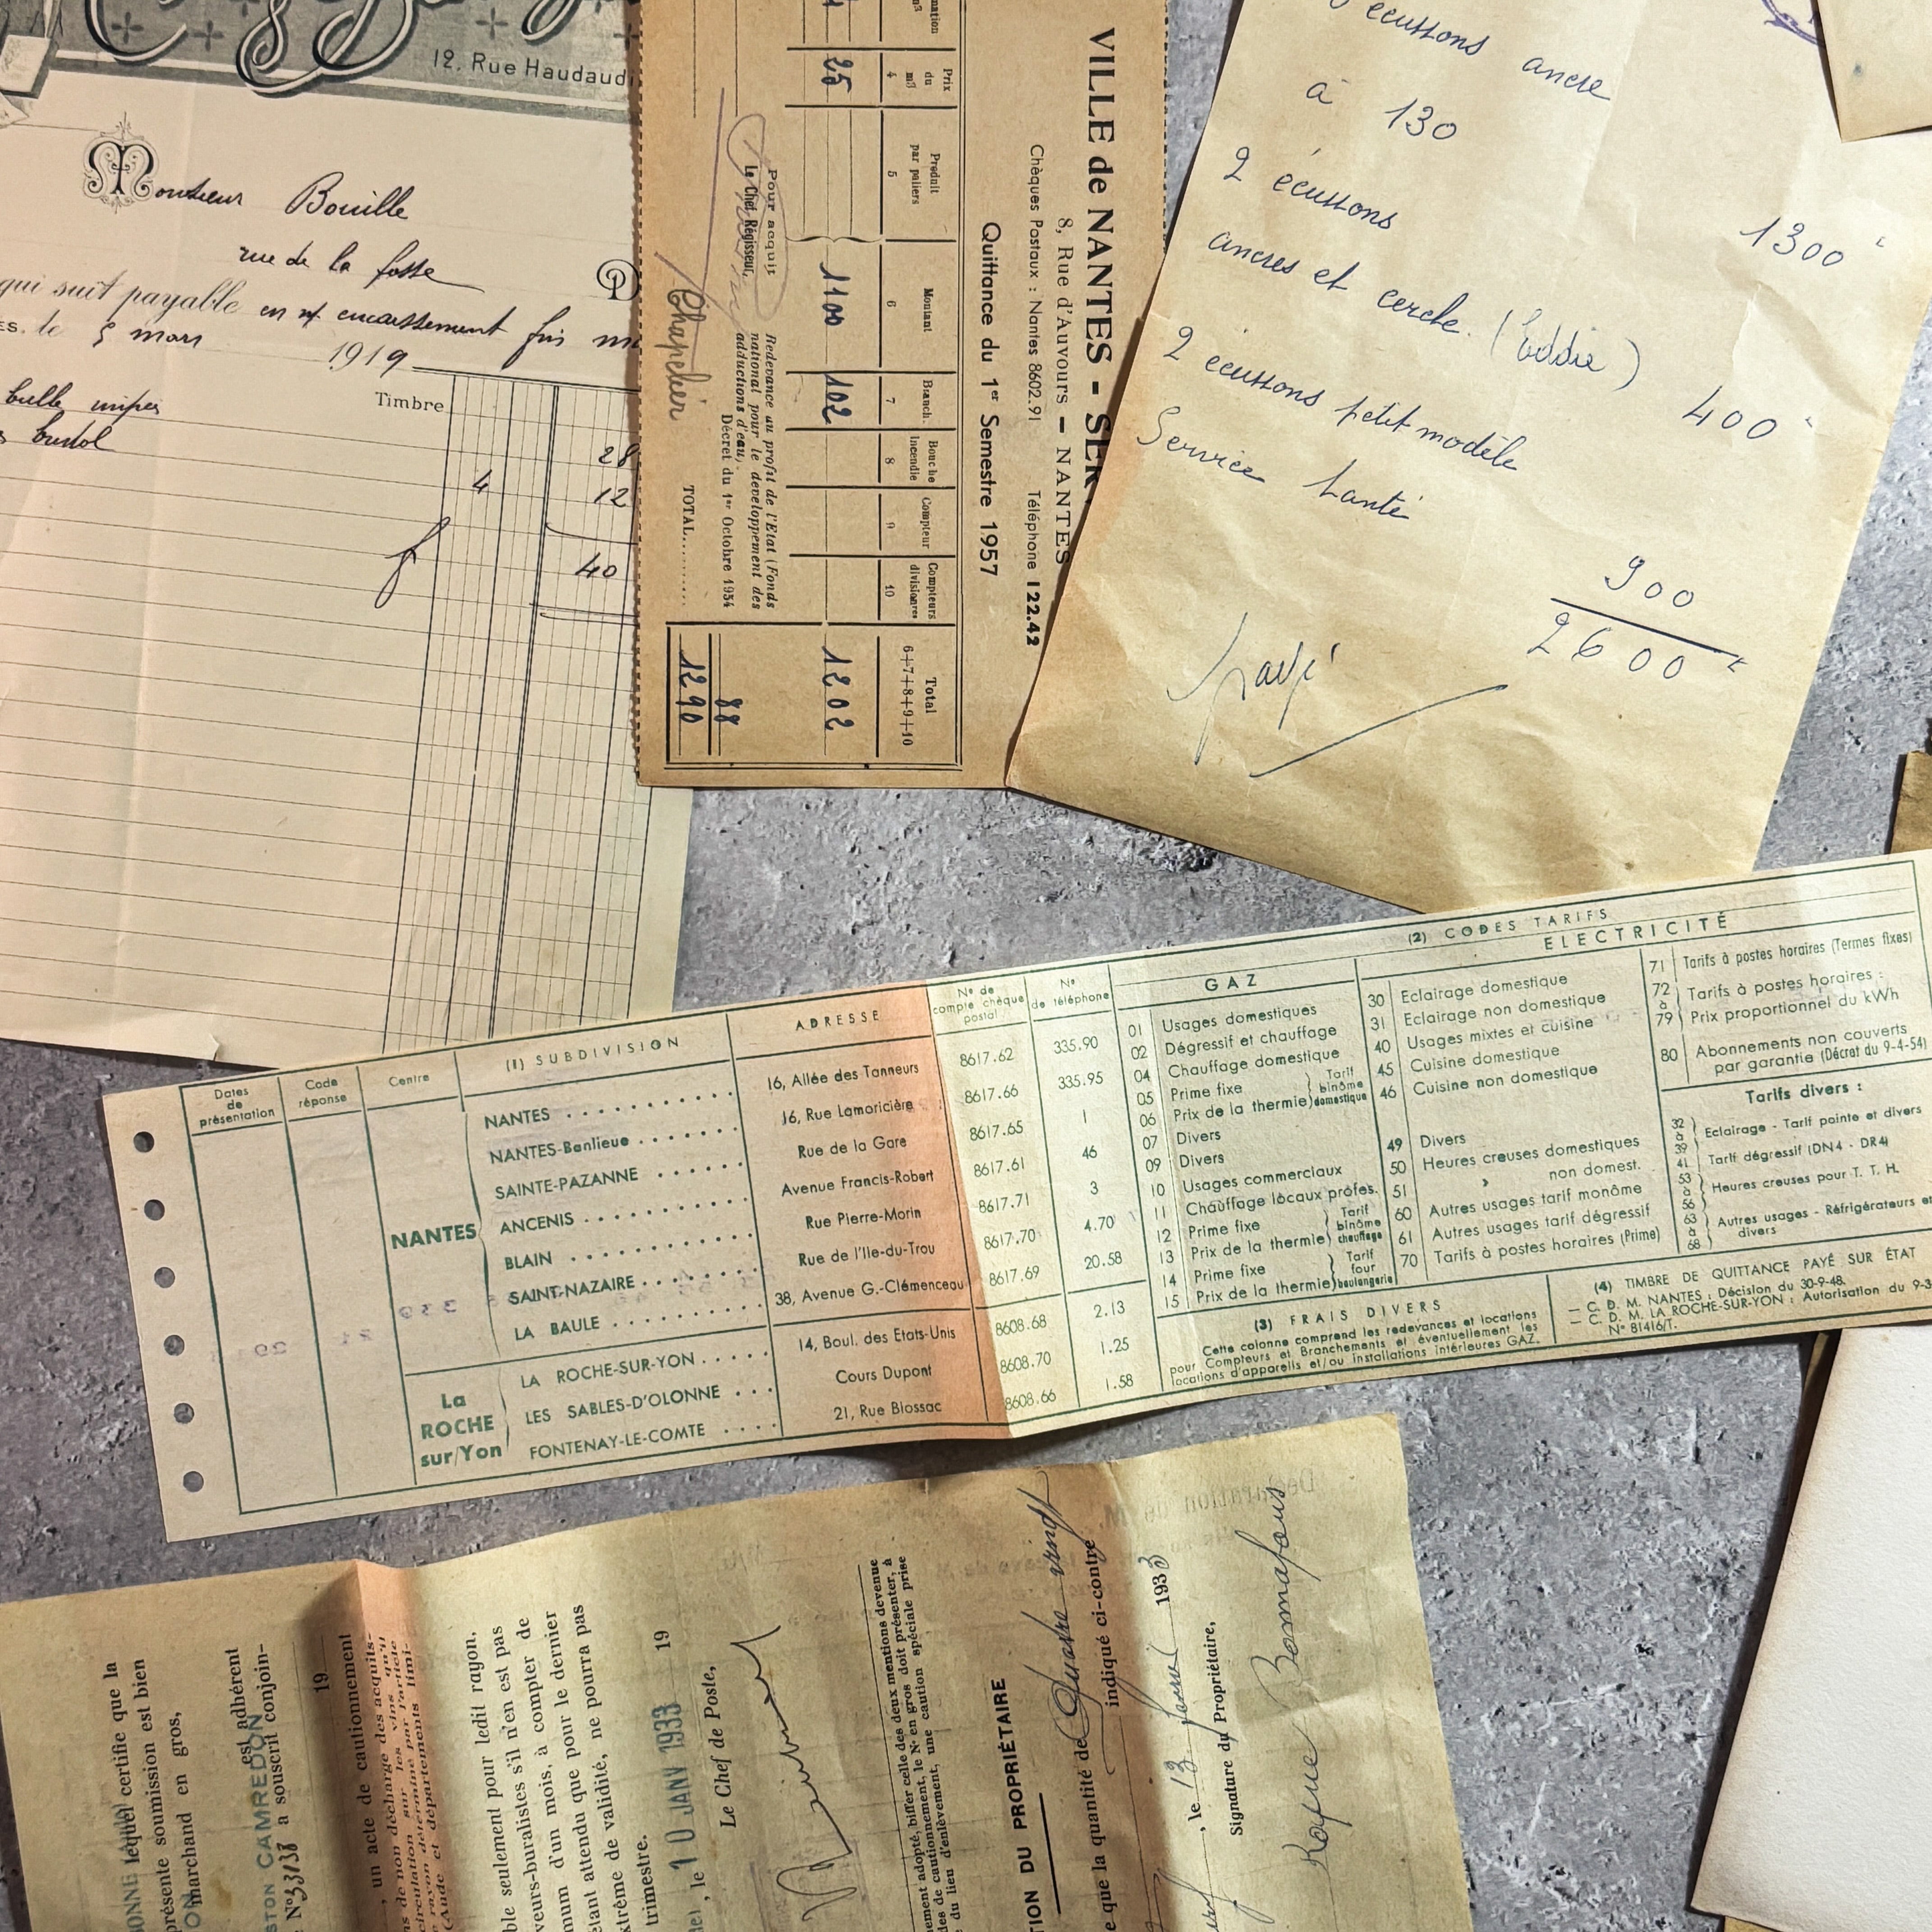 12, Rue Haudaud
Monsieur Bouille
rue de la fosse
qui suit payable en encaissement fin
le 5 mars 1919
Timbre
bulle
28
4 12
40
VILLE de NANTES - SER
8, Rue d'Auvours — NANTES
Chèques Postaux : Nantes 8602.91 Téléphone 122.42
Quittance du 1er Semestre 1957
Prix du m3 4
Produit par paliers 5
Montant 6
Branch. 7
Bouche Incendie 8
Compteur 9
Compteurs divisionres 10
Total 6+7+8+9+10
25 1100 102 1202
Pour acquit
Le Chef Régisseur,
Redevance au profit de l'Etat (Fonds
national pour le developpement des
adductions d'eau).
Décret du 1er Octobre 1954
88
Chapelier
TOTAL........ 1290
écussons ancre
à 130
1300
2 écussons
ancres et cercle. (Eddie)
400
2 écussons petit modèle
Service Santé
900
2600
payé
Dates de présentation
Code réponse
Centre
(1) SUBDIVISION
ADRESSE
N° de compte chèque postal
N° de téléphone
NANTES
NANTES . . . . . . . . . . . 16, Allée des Tanneurs 8617.62 335.90
NANTES-Banlieue . . . . . . . 16, Rue Lamoricière 8617.66 335.95
SAINTE-PAZANNE . . . . . . Rue de la Gare 8617.65 1
ANCENIS . . . . . . . . . . Avenue Francis-Robert 8617.61 46
BLAIN . . . . . . . . . . . . Rue Pierre-Morin 8617.71 3
SAINT-NAZAIRE . . . . . . . . Rue de l'Ile-du-Trou 8617.70 4.70
LA BAULE . . . . . . . . 38, Avenue G.-Clémenceau 8617.69 20.58
La ROCHE sur/Yon
LA ROCHE-SUR-YON . . . . . 14, Boul. des Etats-Unis 8608.68 2.13
LES SABLES-D'OLONNE . . . Cours Dupont 8608.70 1.25
FONTENAY-LE-COMTE . . . . 21, Rue Blossac 8608.66 1.58
(2) CODES TARIFS
GAZ
01 Usages domestiques
02 Dégressif et chauffage
04 Chauffage domestique
05 Prime fixe
06 Prix de la thermie
Tarif binôme domestique
07 Divers
09 Divers
10 Usages commerciaux
11 Chauffage locaux profes.
12 Prime fixe
13 Prix de la thermie
Tarif binôme chauffage
14 Prime fixe
15 Prix de la thermie
Tarif four boulangerie
ELECTRICITÉ
30 Eclairage domestique
31 Eclairage non domestique
40 Usages mixtes et cuisine
45 Cuisine domestique
46 Cuisine non domestique
49 Divers
50 Heures creuses domestiques
51 » non domest.
60 Autres usages tarif monôme
61 Autres usages tarif dégressif
70 Tarifs à postes horaires (Prime)
71 Tarifs à postes horaires (Termes fixes)
72 à 79 Tarifs à postes horaires :
Prix proportionnel du kWh
80 Abonnements non couverts
par garantie (Décret du 9-4-54)
Tarifs divers :
32 à 39 Eclairage - Tarif pointe et divers
41 Tarif dégressif (DN4 - DR4)
53 à 56 Heures creuses pour T. T. H.
63 à 68 Autres usages - Réfrigérateurs et
divers
(3) FRAIS DIVERS
Cette colonne comprend les redevances et locations
pour Compteurs et Branchements et éventuellement les
locations d'appareils et/ou installations intérieures GAZ.
(4) TIMBRE DE QUITTANCE PAYÉ SUR ÉTAT
— C. D. M. NANTES : Décision du 30-9-48.
— C. D. M. LA ROCHE-SUR-YON : Autorisation du 9-3
N° 81416/T.
lequel certifie que la
présente soumission est bien
marchand en gros,
est adhérent
STON CAMREDON
N° 33/38 a souscrit conjoin-
19
, un acte de cautionnement
ns de non décharge des acquits-
circulation sur les vins qu'il
e rayon déterminé par l'article
(Aude et départements limi-
ble seulement pour ledit rayon.
veurs-buralistes s'il n'en est pas
mum d'un mois, à compter de
étant attendu que pour le dernier
xtrême de validité, ne pourra pas
trimestre.
, le 10 JANV 1933 19
Le Chef de Poste,
nement adopté, biffer celle des deux mentions devenue
des de cautionnement, le Nt en gros doit présenter, à
du lieu d'enlèvement, une caution spéciale prise
TION DU PROPRIÉTAIRE
e que la quantité de Quatre vingt
indiqué ci-contre
, le 13 1933
Signature du Propriétaire,
Roque Bonnafous